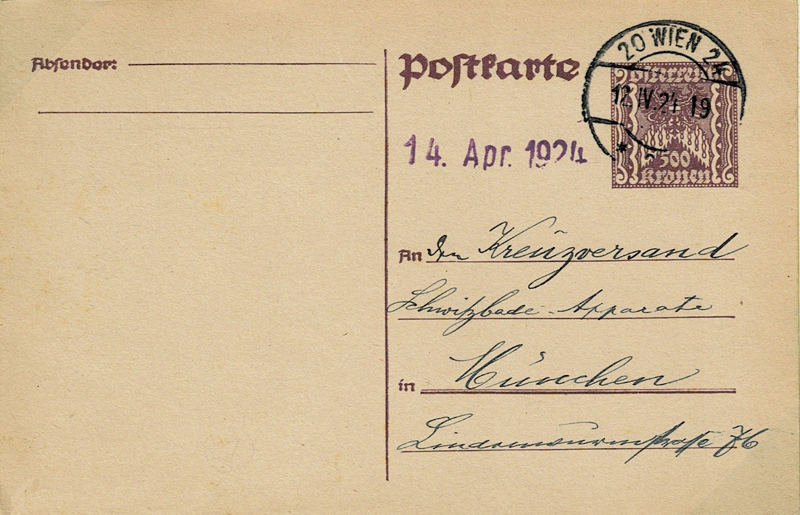 Absender:
Postkarte
20 WIEN 2
12.IV.24 19
*
500
Kronen
14. Apr. 1924
An den Kreuzversand
Schwitzbade-Apparate
in München
Lindwurmstraße 76